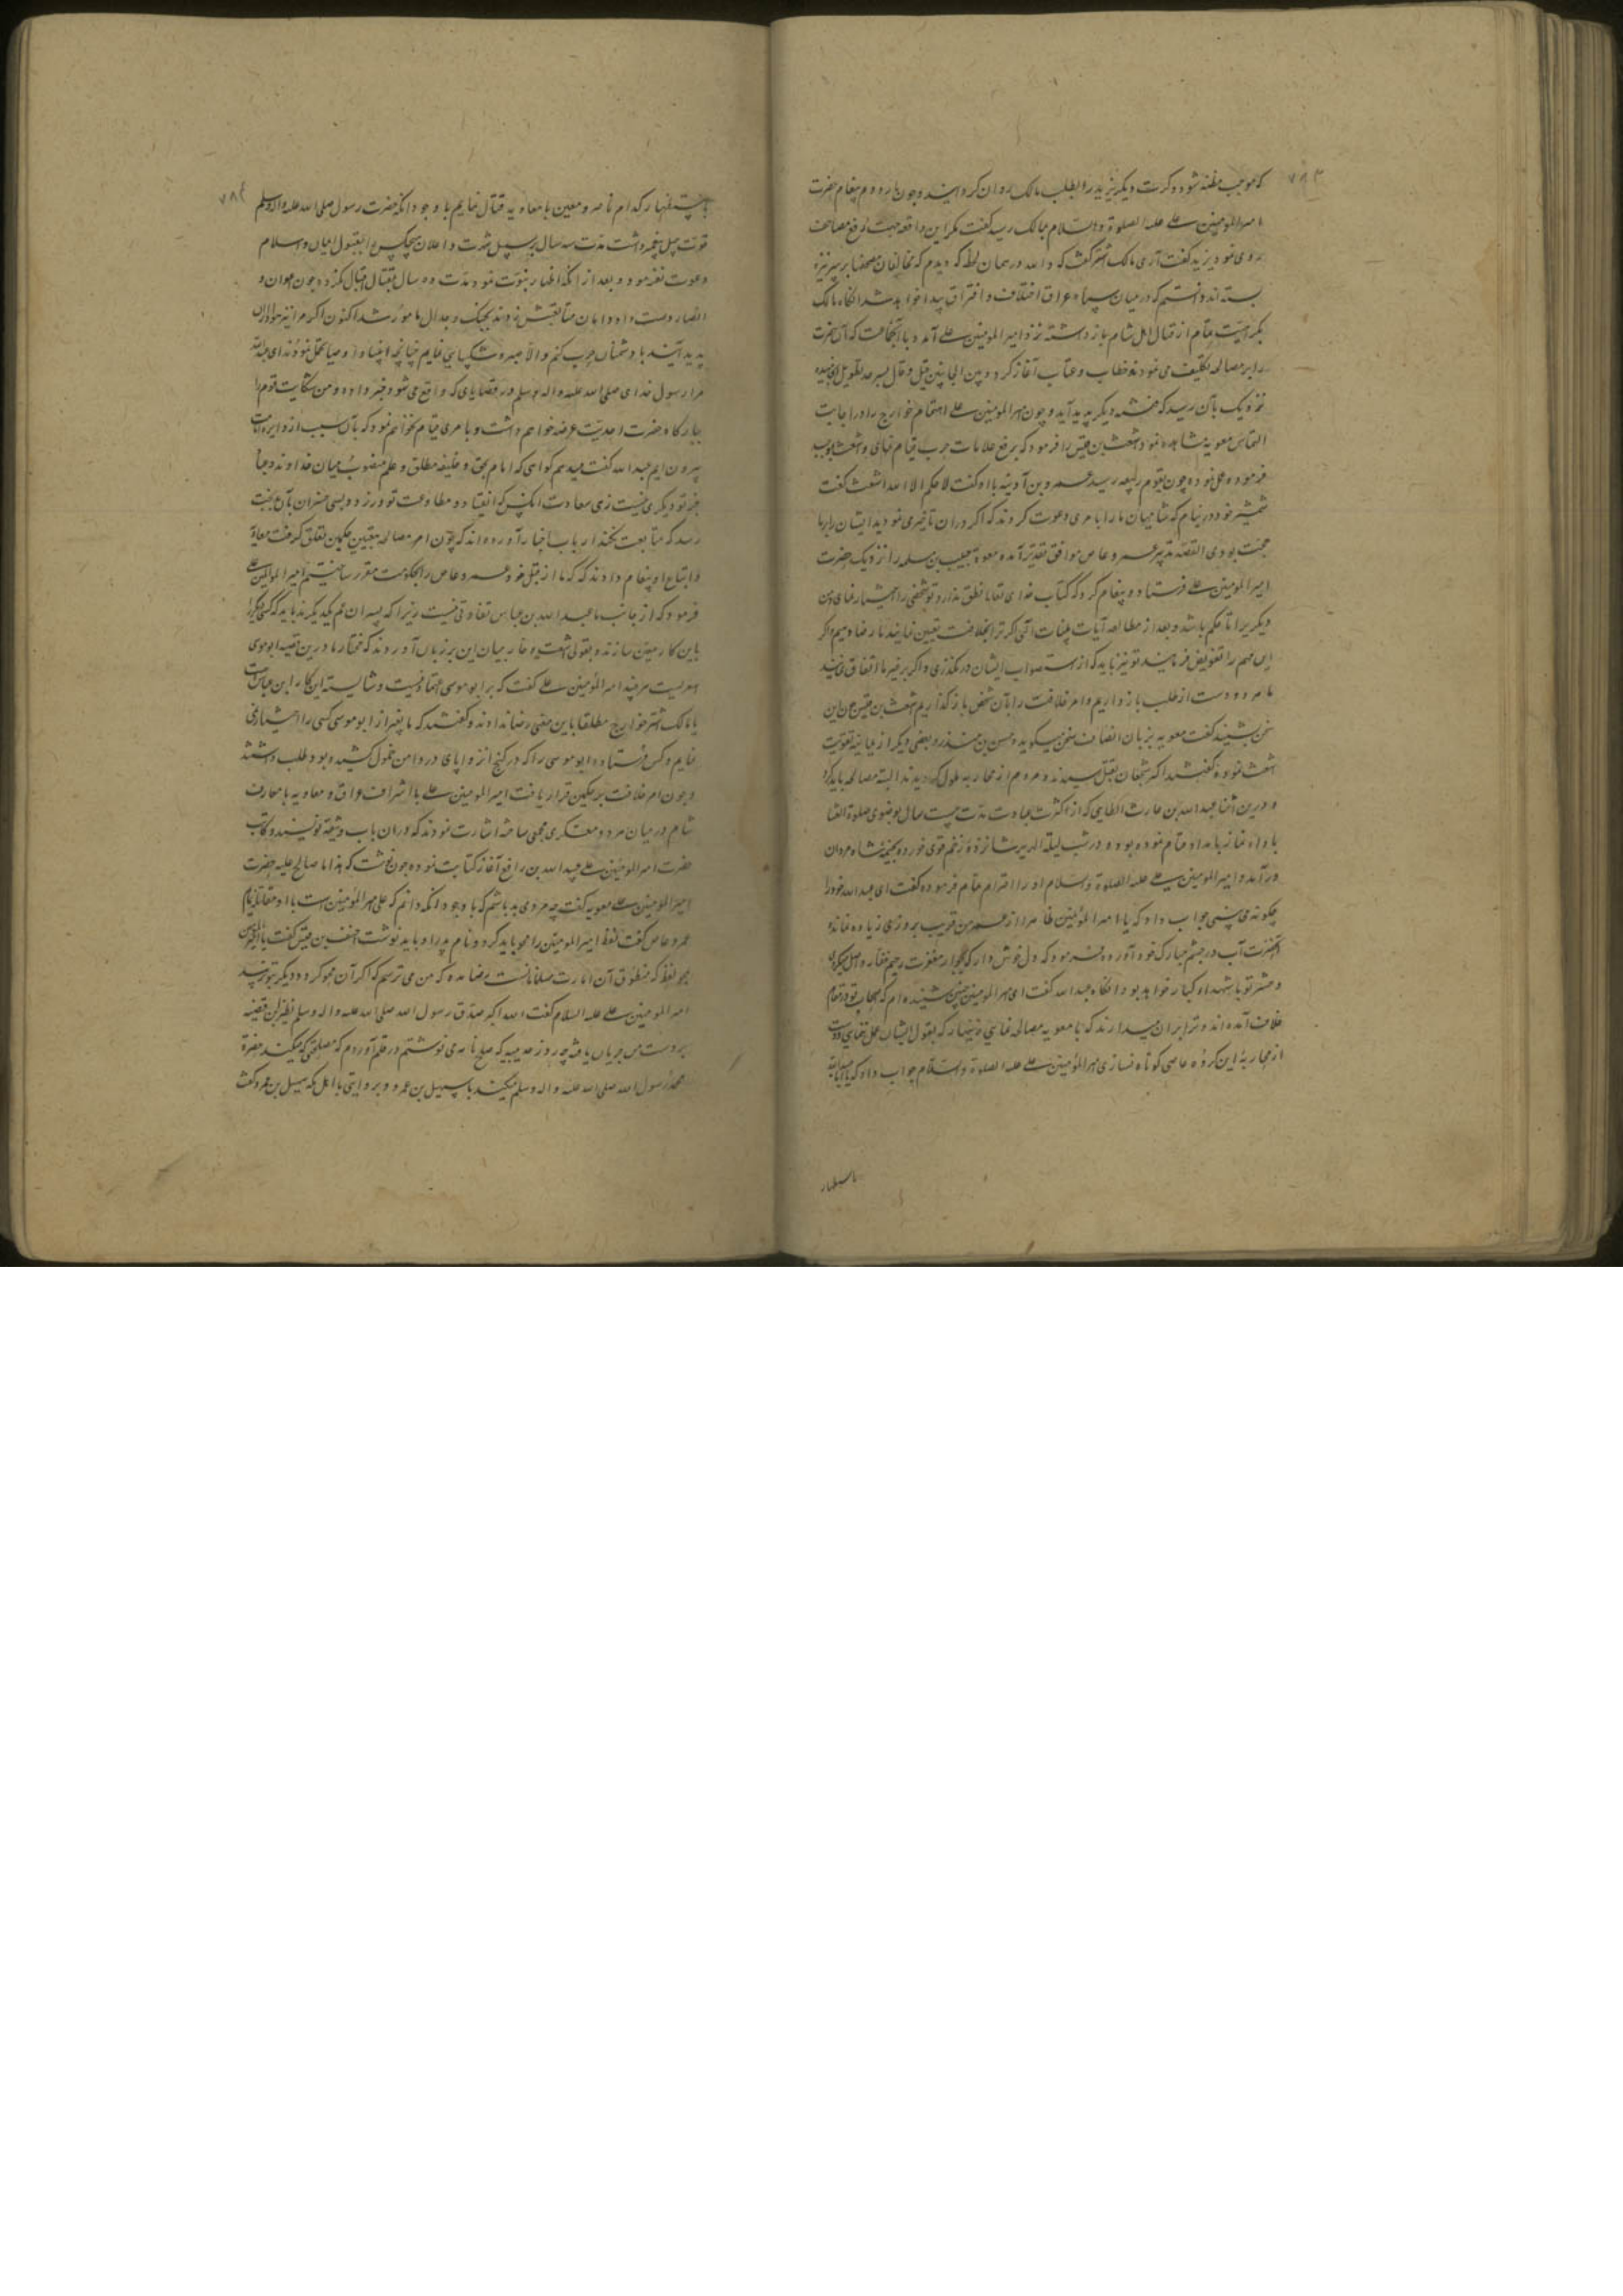 ۷۸۳
که موجب مظنه شود و کرت دیگر یزید را بطلب مالک روان کردانید و چون بار دوم پیغام حضرت
امیر المومنین علی علیه الصلوة والسلام بمالک رسید کفت مکر این واقعه جهت رفع مصاحف
روی نمود یزید کفت آری مالک اشتر کفت که والله در همان لحظه که دیدم که مخالفان مصحفها بر سر نیزه
بسته اند دانستم که در میان سپاه عراق اختلاف و افتراق پیدا خواهد شد آنکاه مالک
بکراهیت تمام از قتال اهل شام باز داشته نزد امیر المومنین علی آمد و با آن جماعت که آن حضرت
را بر مصالحه تکلیف می نمودند خطاب و عتاب آغاز کرد و بین الجانبین قیل و قال بسرحد تطویل انجامیده
نزدیک بآن رسید که فتنه دیگر پدید آید و چون امیر المومنین علی اهتمام خوارج را در اجابت
التماس معویه مشاهده نمود اشعث بن قیس را فرمود که برفع علامات حرب قیام نمای و اشعث بموجب
فرموده عمل نموده چون بقوم ربیعه رسید عمرو بن آدینه با او کفت لا حکم الا الله اشعث کفت
شمشیر خود در نیام کن شامیان ما را بامری دعوت کردند که اکر در آن تاخیری نمودید ایشان را بر ما
حجت بودی القصه تدبیر عمرو عاص موافق تقدیر آمده معویه حبیب بن مسلمه را نزدیک حضرت
امیر المومنین علی فرستاد و پیغام کرد که کتاب خدای تعالی نطق ندارد تو شخصی را اختیار نمای و من
دیکری را تا حکم باشد و بعد از مطالعه آیات بینات الهی اکر ترا بخلافت تعیین نمایند ما رضا دهیم و اکر
این مهم را بمن تفویض فرمایند تو نیز باید که از استصواب ایشان در نکذری و اکر بر غیر ما اتفاق نمایند
ما هر دو دست از طلب باز داریم و امر خلافت را بآن شخص باز کذاریم اشعث بن قیس چون این
سخن بشنید کفت معویه بزبان انصاف سخن میکوید و حسن بن منذر و بعضی دیکر از یمانیه تقویت
اشعث نموده کفتند اکثر شجعان بقتل رسیدند و مردم از محاربه ملول کردیدند البته مصالحه باید کرد
و در این اثنا عبد الله بن حارث الطایی که از کثرت عبادت مدت بیست سال بوضوی صلوة العشا
باداء نماز بامداد قیام نموده بود و در شب لیلة الهریر شانزده زخم قوی خورده بخیمه شاه مردان
در آمد و امیر المومنین علی علیه الصلوة والسلام او را احترام تمام فرموده کفت ای عبد الله خود را
چکونه می بینی جواب داد که یا امیر المومنین ظاهرا از عمر من قریب بروزی زیاده نمانده
آنحضرت آب در چشم مبارک خود آورده فرمود که دل خوش دار که بجوار مغفرت رحیم غفار واصل میکردی
و حشر تو با شهداء کبار خواهد بود و آنکاه عبد الله کفت ای امیر المومنین چنین شنیده ام که اصحاب تو در مقام
خلاف آمده اند و ترا بر آن میدارند که با معویه مصالحه نمایی زینهار که بقول ایشان عمل ننمایی و دست
از محاربه این کروه عاصی کوتاه نسازی امیر المومنین علی علیه الصلوة والسلام جواب داد که یا عبد الله
باستظهار
۷۸٤
باستظهار کدام ناصر و معین با معاویه قتال نمایم با وجود آنکه حضرت رسول صلی الله علیه واله وسلم
قوت چهل پیغمبر داشت مدت سه سال بر سبیل شهرت و اعلان هیچکس را بقبول ایمان و اسلام
دعوت نفرمود و بعد از آنکه اظهار نبوت نمود مدت ده سال بقتال اقبال نکرد و چون اعوان و
انصار دست داد و ایشان متابعتش نمودند بجنک و جدال مامور شد اکنون اکر مرا نیز هواداران
پدید آیند با دشمنان حرب کنم و الا صبر و شکیبایی نمایم چنانچه انبیا و اوصیا تحمل نمودند ای عبد الله
مرا رسول خدای صلی الله علیه واله وسلم از قضایای که واقع می شود خبر داده و من شکایت قوم را
ببارکاه حضرت احدیت عرضه خواهم داشت و بامری قیام نخواهم نمود که بآن سبب از دایره امامت
بیرون آیم عبد الله کفت میدهم کواهی که امام بحق و خلیفه مطلق و علم منصوب میان خدا و بندکان
جز تو دیکری نیست زهی سعادت آنکس که انقیاد و مطاوعت تو ورزد و بسی خسران بآن بدبخت
رسد که متابعت نکند ارباب اخبار آورده اند که چون امر مصالحه بتعیین حکمین تعلق کرفت معاویه
و اتباع او پیغام دادند که ما از قبل خود عمرو عاص را بحکومت مقرر ساختیم امیر المومنین علی
فرمود که از جانب ما عبد الله بن عباس تفاوتی نیست زیرا که پسران عم یکدیکرند باید که کسی دیکر را
باین کار معین سازند و بقولی اشعث و خوارج بیان این بر زبان آوردند که مختار ما در این قضیه ابو موسی
اشعریست هرچند امیر المومنین علی کفت که بر ابو موسی اعتماد نیست و شایسته این کار ابن عباس است
یا مالک اشتر خوارج مطلقا باین معنی رضا ندادند و کفتند که ما بغیر از ابو موسی کسی را اختیار نمی
نمایم و کس فرستاده ابو موسی را که در کنج انزوا پای در دامن خمول کشیده بود طلب داشتند
و چون امر خلافت بر حکمین قرار یافت امیر المومنین علی با اشراف عراق و معاویه با معارف
شام در میان هر دو معسکر مجمعی ساخته اشارت نمودند که در آن باب وثیقه نویسند و کاتب
حضرت امیر المومنین علی عبید الله بن رافع آغاز کتابت نموده چون نوشت که هذا ما صالح علیه حضرت
امیر المومنین علی معویه کفت چه مردی بد باشم که با وجود آنکه دانم که علی امیر المومنین است با او مقاتله نمایم
عمرو عاص کفت لفظ امیر المومنین را محو باید کرد و نام پدر او باید نوشت احنف بن قیس کفت یا امیر المومنین
بمحو لفظی که منطوق آن امارت مسلمانانست رضا مده که من می ترسم که اکر آن محو کردد دیکر بتو نرسد
امیر المومنین علی علیه السلام کفت الله اکبر صدق رسول الله صلی الله علیه واله وسلم نظیر این قضیه
بر دست من جریان یافته چه روز حدیبیه که صلح نامه می نوشتم در قلم آوردم که مصالحتی که میکند حضرة
محمد رسول الله صلی الله علیه واله وسلم میکند با سهیل بن عمرو و بروایتی با اهل مکه سهیل بن عمرو کفت